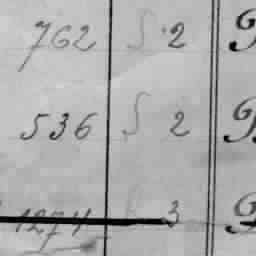 762 S 2
536 S 2
1274 3